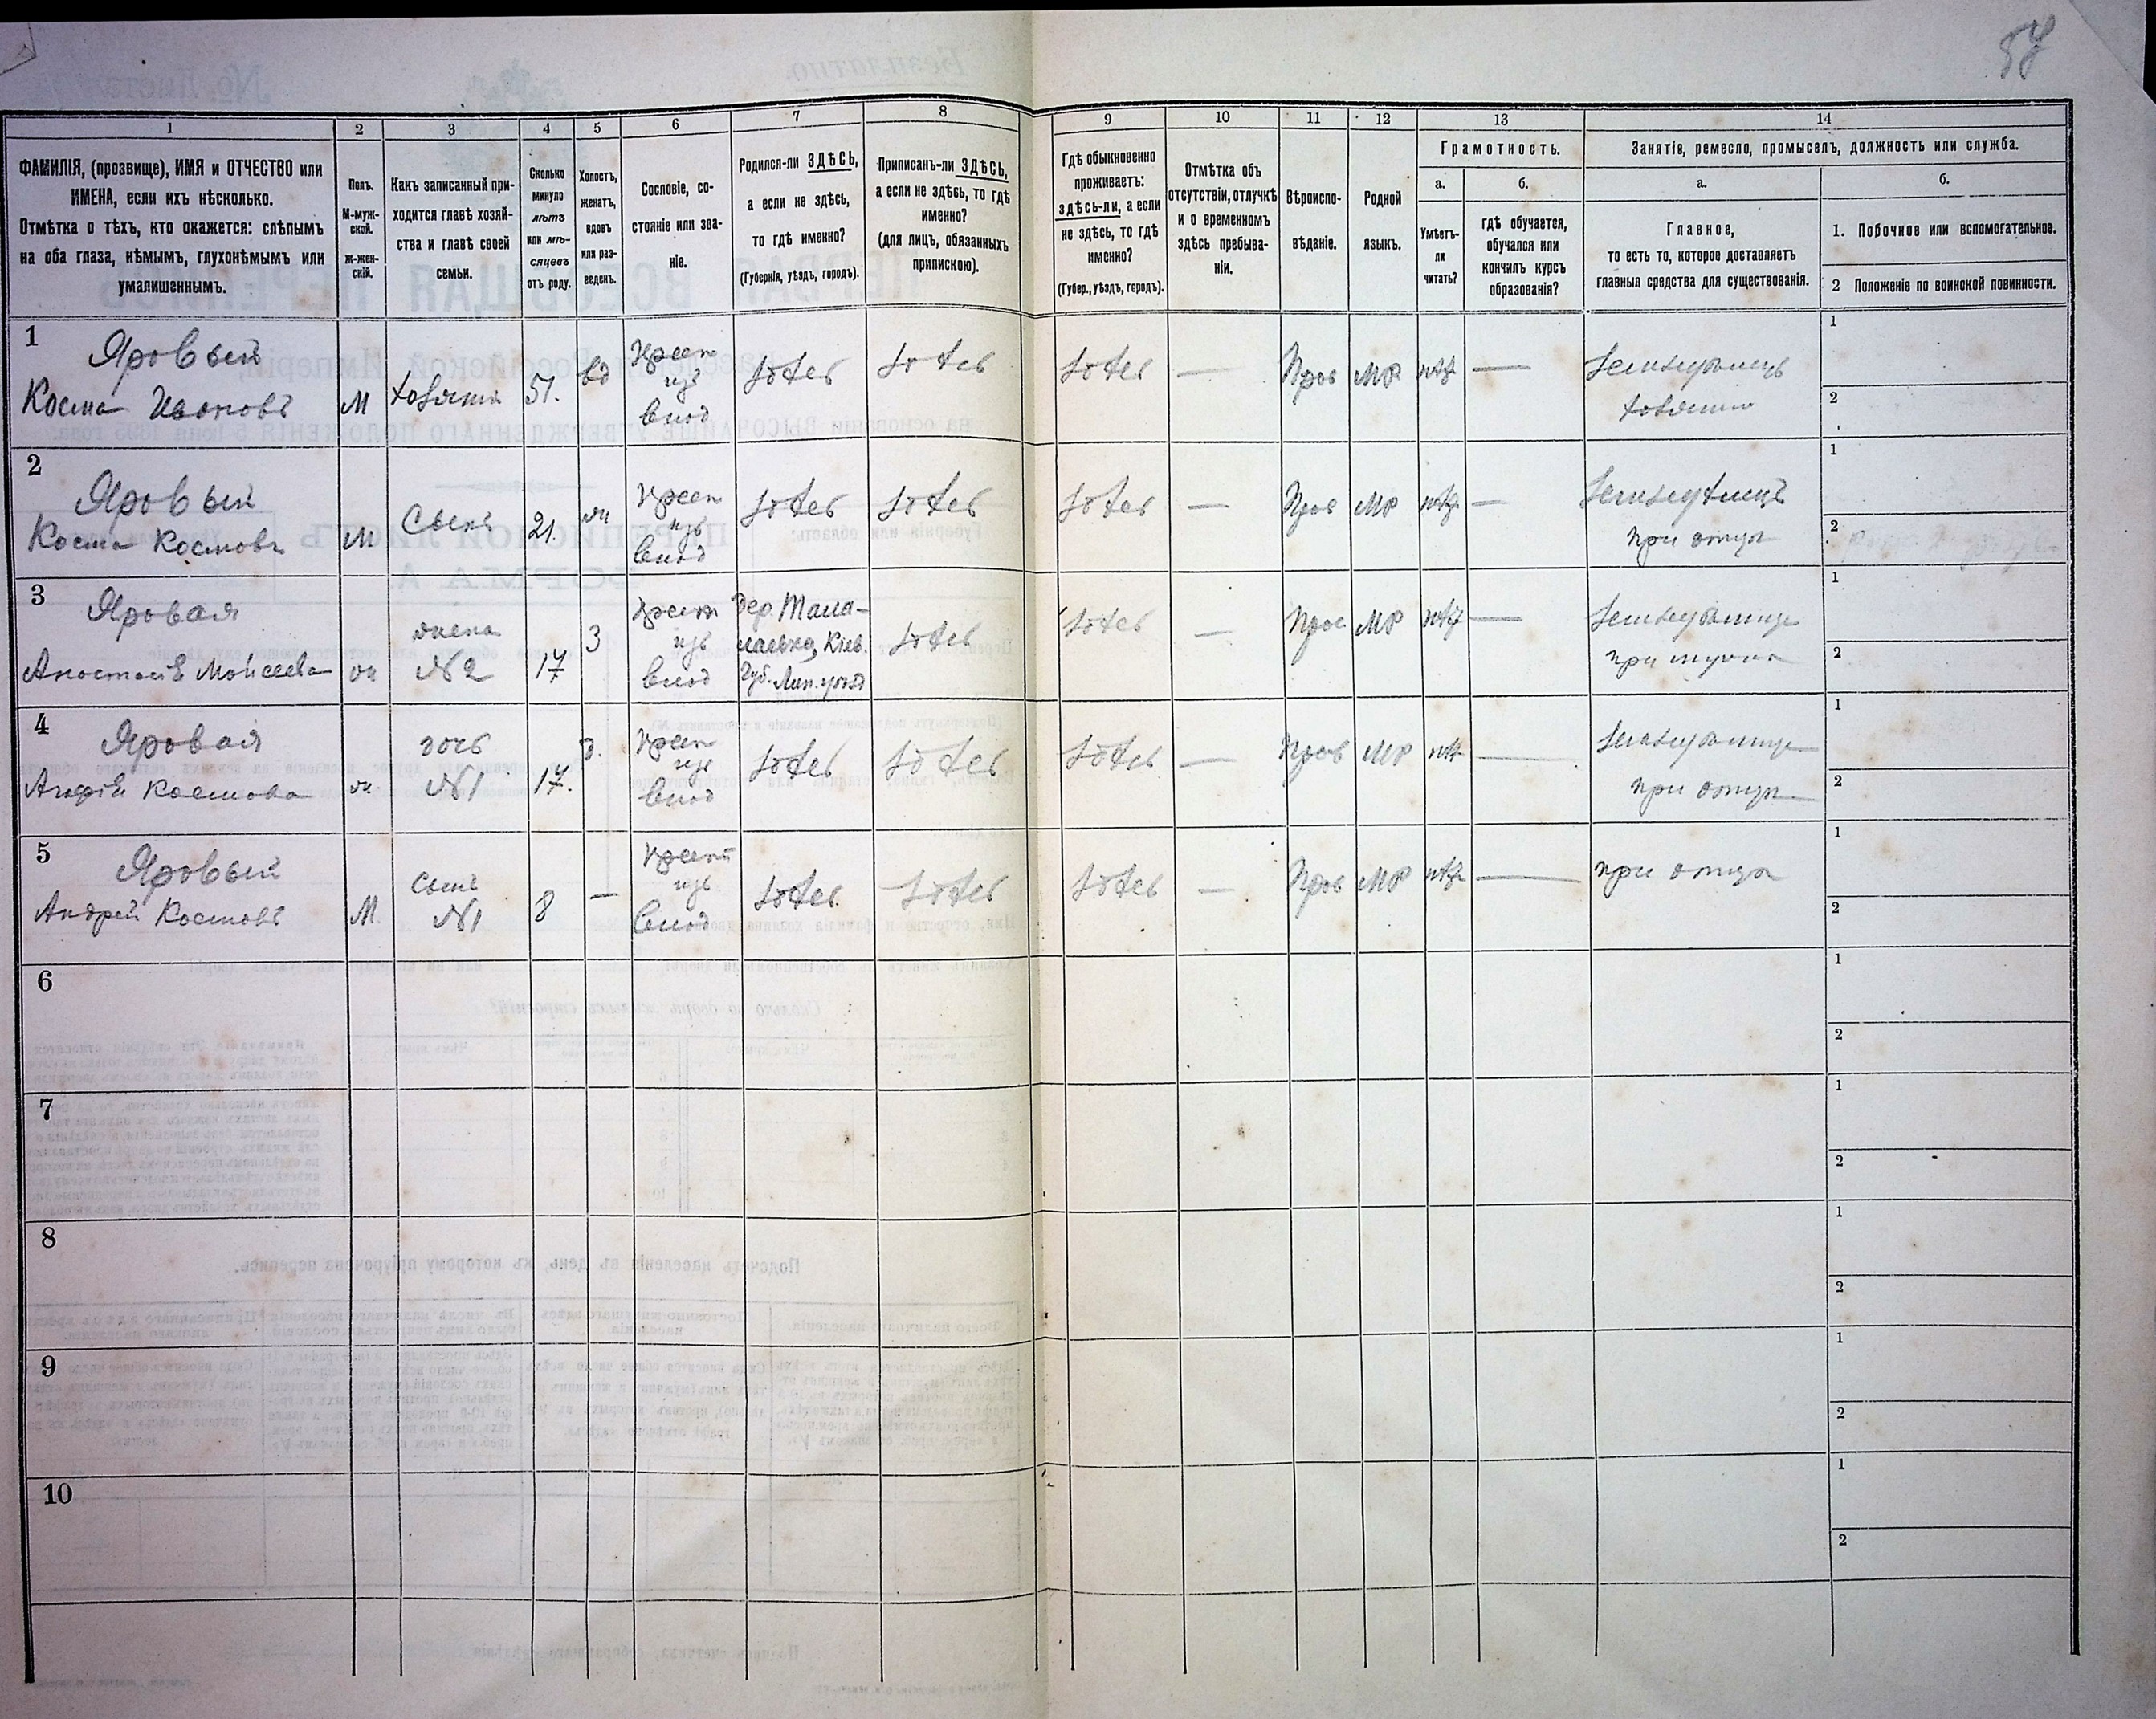 57
1
2
3
4
5
6
7
8
9
10
11
12
13
14
ФАМИЛІЯ, (прозвище), ИМЯ и ОТЧЕСТВО или
ИМЕНА, если ихъ нѣсколько.
Отмѣтка о тѣхъ, кто окажется: слѣпымъ
на оба глаза, нѣмымъ, глухонѣмымъ или
умалишеннымъ.
Полъ.
М-муж-
ской.
ж-жен-
скій.
Какъ записанный при-
ходится главѣ хозяй-
ства и главѣ своей
семьи.
Сколько
минуло
лѣтъ
или мѣ-
сяцевъ
отъ роду.
Холостъ,
женатъ,
вдовъ
или раз-
веденъ.
Сословіе, со-
стояніе или зва-
ніе.
Родился-ли ЗДѢСЬ,
а если не здѣсь,
то гдѣ именно?
(Губернія, уѣздъ, городъ).
Приписанъ-ли ЗДѢСЬ,
а если не здѣсь, то гдѣ
именно?
(для лицъ, обязанныхъ
припискою).
Гдѣ обыкновенно
проживаетъ:
здѣсь-ли, а если
не здѣсь, то гдѣ
именно?
(Губер., уѣздъ, городъ).
Отмѣтка объ
отсутствіи, отлучкѣ
и о временномъ
здѣсь пребыва-
ніи.
Вѣроиспо-
вѣданіе.
Родной
языкъ.
Грамотность.
а.
б.
Умѣетъ-
ли
читать?
гдѣ обучается,
обучался или
кончилъ курсъ
образованія?
Занятіе, ремесло, промыселъ, должность или служба.
а.
б.
Главное,
то есть то, которое доставляетъ
главныя средства для существованія.
1. Побочное или вспомогательное.
2 Положеніе по воинской повинности.
1
Яровый
Косма Ивановъ
М
хозяинъ
51.
вд
Крест
изъ
влад
здѣсь
здѣсь
здѣсь
—
Прав
МР
нѣт
—
Земледѣлецъ
хозяинъ
1
2
2
Яровый
Косма Космовъ
М
Сынъ
21.
жн
Крест
изъ
влад
здѣсь
здѣсь
здѣсь
—
Прав
МР
нѣт
—
Земледѣлецъ
при отцѣ
1
2
3
Яровая
Анастасія Моисеева
ж
жена
№2
17
З
Крест
изъ
влад
дер.
Кіев.
Губ. Лип. уѣзд
здѣсь
здѣсь
—
Прав
МР
нѣт
—
Земледѣлица
при мужѣ
1
2
4
Яровая
Космова
ж.
дочь
№1
17.
д.
Крест
изъ
влад
здѣсь
здѣсь
здѣсь
—
Прав
МР
нѣт
—
Земледѣлица
при отцѣ
1
2
5
Яровый
Андрей Космовъ
М.
Сынъ
№1
8
—
Крест
изъ
влад
здѣсь
здѣсь
здѣсь
—
Прав
МР
нѣт
—
при отцѣ
1
2
6
1
2
7
1
2
8
1
2
9
1
2
10
1
2